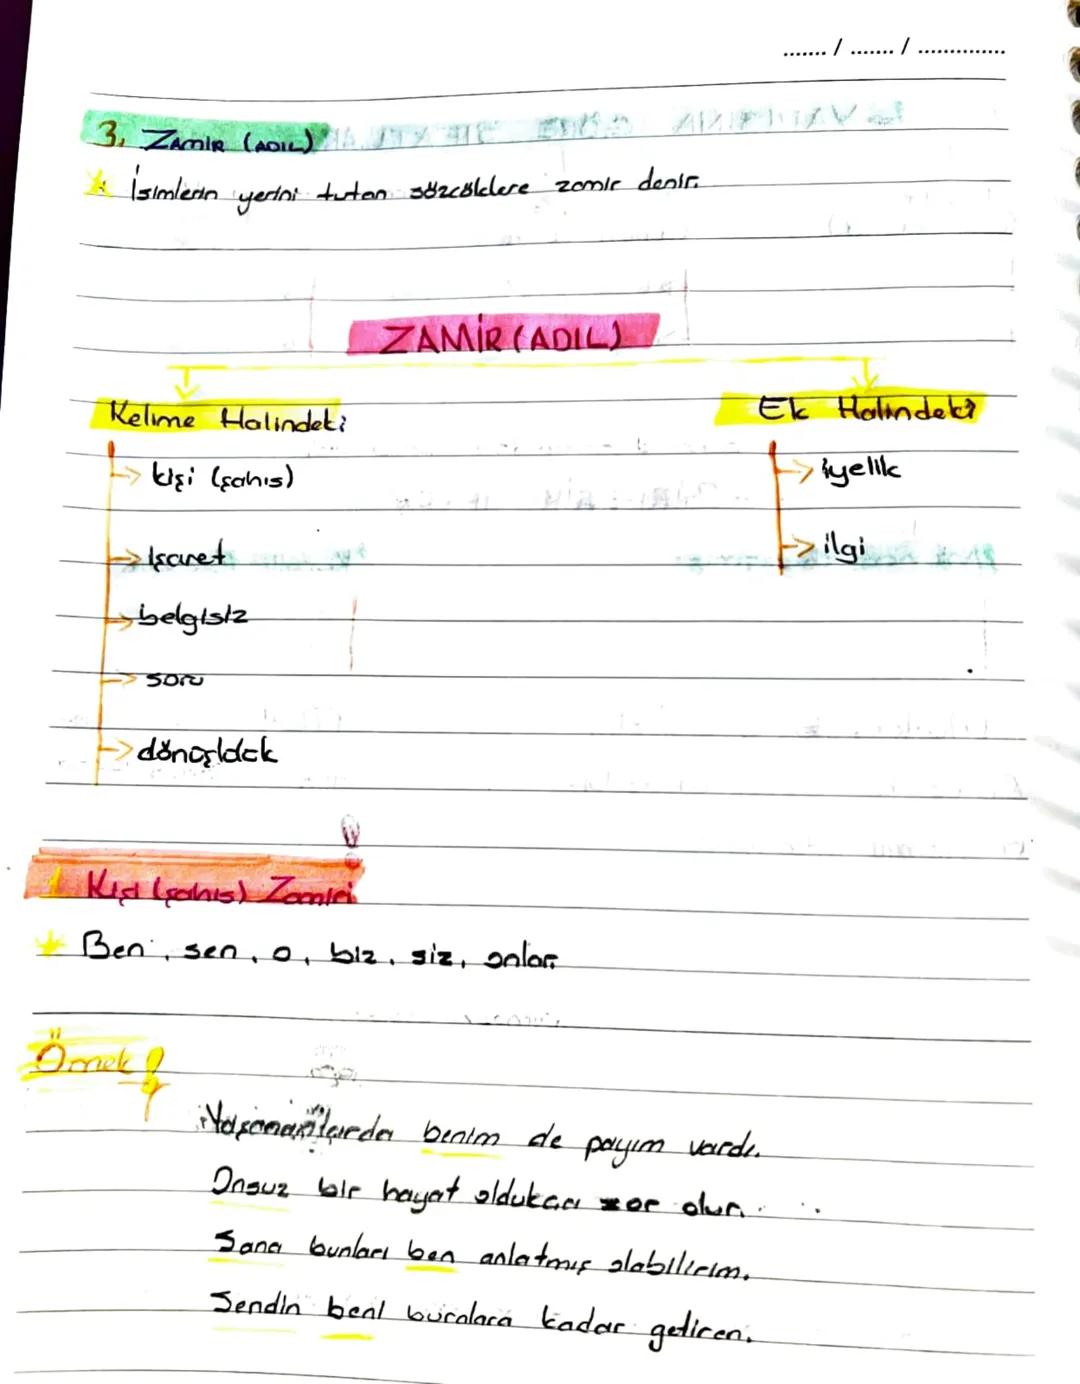 ....... / ....... / ..............
3. ZAMİR (ADIL)
İsimlerin yerini tutan sözcüklere zamir denir.
ZAMİR (ADIL)
Kelime Halindeki
Ek Halindeki
kişi (şahıs)
iyelik
işaret
ilgi
belgisiz
soru
dönüşlülük
1 Kişi (şahıs) Zamiri
Ben, sen, o, biz, siz, onlar.
Örnek
Yaşananlarda benim de payım vardı.
Onsuz bir hayat oldukça zor olur.
Sana bunları ben anlatmış olabilirim.
Sendin beni buralara kadar getiren.